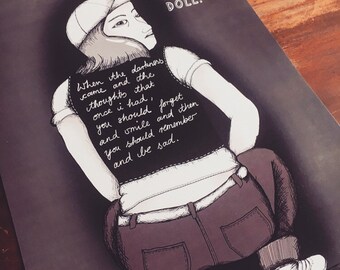 DOLL.
When the darkness
came and the
thoughts that
once i had,
you should forget
and smile and then
you should remember
and be sad.